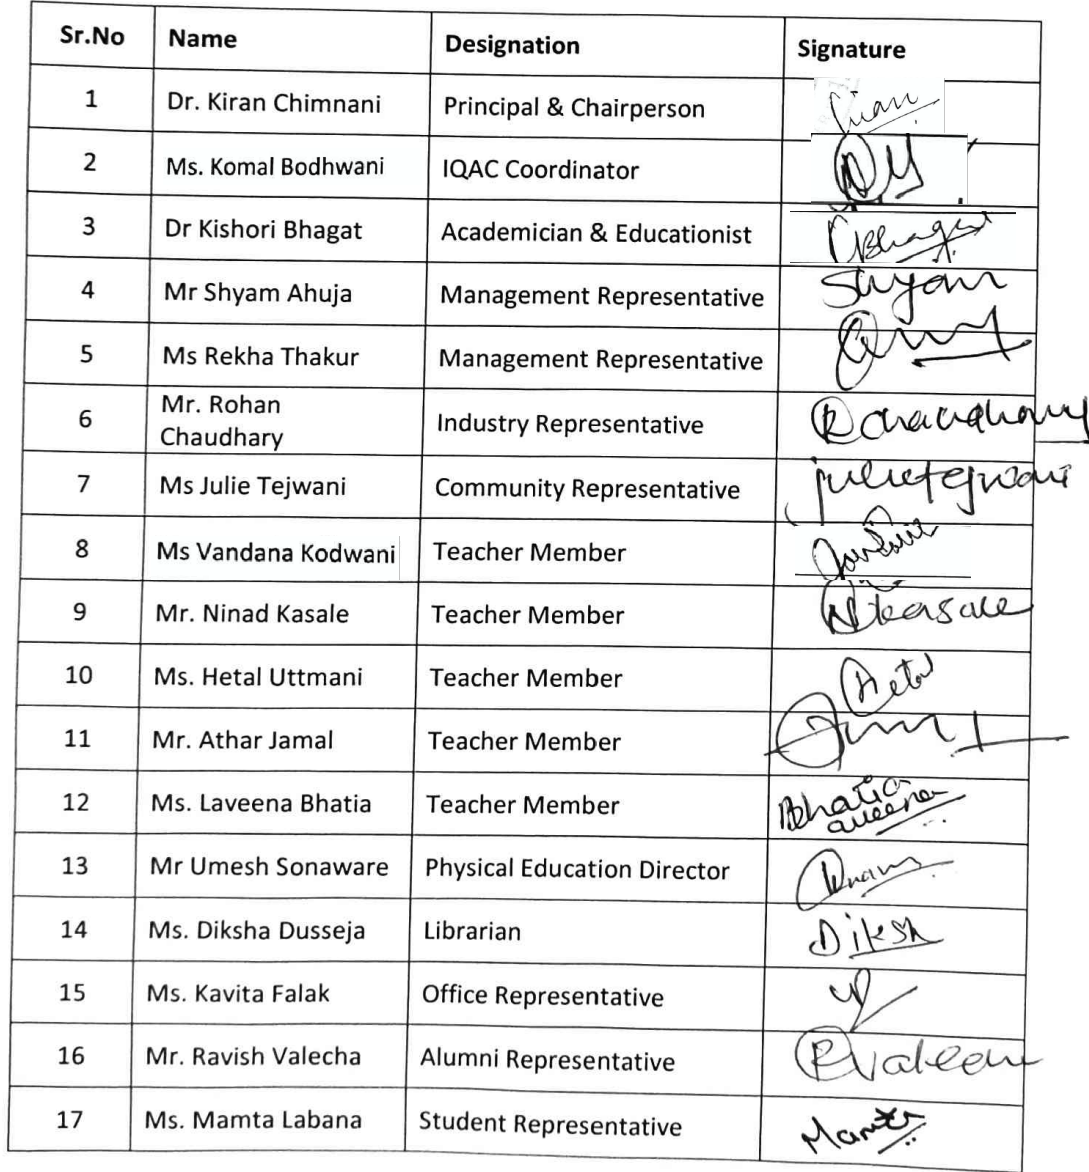 Sr.No Name Designation Signature
1 Dr. Kiran Chimnani Principal & Chairperson
2 Ms. Komal Bodhwani IQAC Coordinator
3 Dr Kishori Bhagat Academician & Educationist Bhagat
4 Mr Shyam Ahuja Management Representative Shyam
5 Ms Rekha Thakur Management Representative
6 Mr. Rohan
Chaudhary Industry Representative R Chaudhary
7 Ms Julie Tejwani Community Representative julietejwani
8 Ms Vandana Kodwani Teacher Member
9 Mr. Ninad Kasale Teacher Member NKasale
10 Ms. Hetal Uttmani Teacher Member Hetal
11 Mr. Athar Jamal Teacher Member
12 Ms. Laveena Bhatia Teacher Member Bhatia
aveena
13 Mr Umesh Sonaware Physical Education Director
14 Ms. Diksha Dusseja Librarian Diksh
15 Ms. Kavita Falak Office Representative
16 Mr. Ravish Valecha Alumni Representative
17 Ms. Mamta Labana Student Representative Mamta